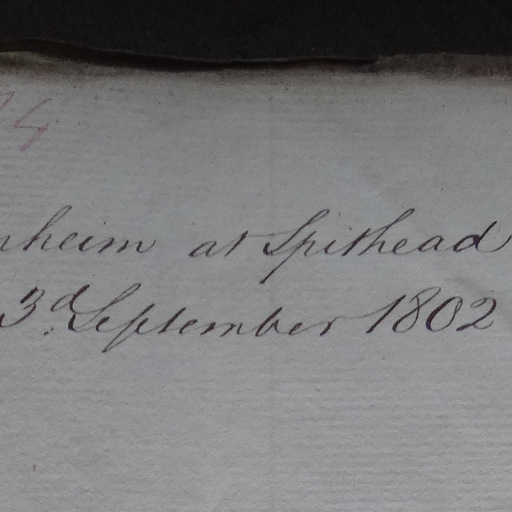 nheim at Spithead
3d. September 1802